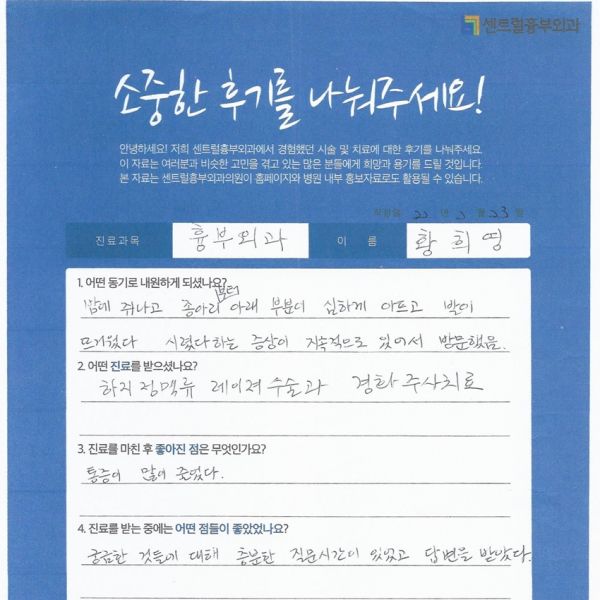 센트럴흉부외과
소중한 후기를 나눠주세요!
안녕하세요! 저희 센트럴흉부외과에서 경험했던 시술 및 치료에 대한 후기를 나눠주세요.
이 자료는 여러분과 비슷한 고민을 겪고 있는 많은 분들에게 희망과 용기를 드릴 것입니다.
본 자료는 센트럴흉부외과의원이 홈페이지와 병원 내부 홍보자료로도 활용될 수 있습니다.
작성일 22 년 월 23 일
진료과목 흉부외과 이 름 황희영
1. 어떤 동기로 내원하게 되셨나요?
밤에 쥐나고 종아리부터 아래 부분이 심하게 아프고 발이
뜨거웠다 시렸다하는 증상이 지속적으로 있어서 방문했음.
2. 어떤 진료를 받으셨나요?
하지정맥류 레이져수술과 경화주사치료
3. 진료를 마친 후 좋아진 점은 무엇인가요?
통증이 많이 줄었다.
4. 진료를 받는 중에는 어떤 점들이 좋았었나요?
궁금한 것들에 대해 충분한 질문시간이 있었고 답변을 받았다.